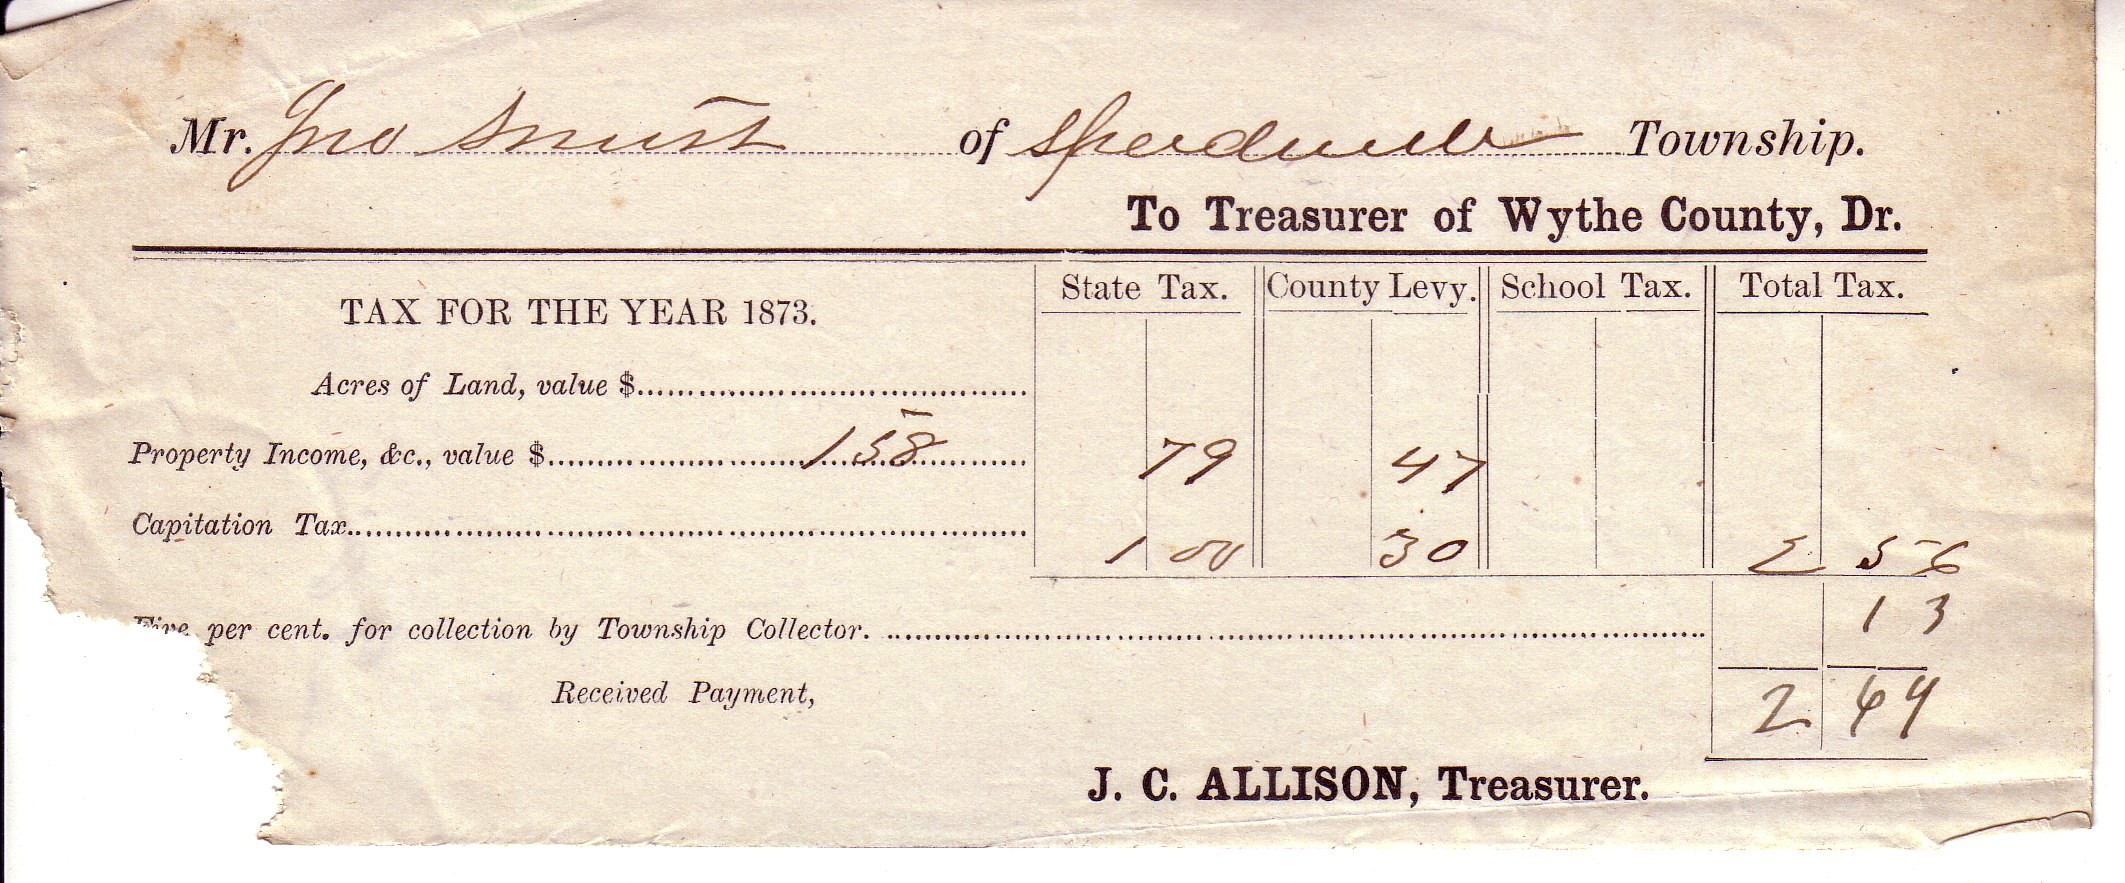 Mr. Jno Smith of Speedwell Township.
To Treasurer of Wythe County, Dr.
TAX FOR THE YEAR 1873. State Tax. County Levy. School Tax. Total Tax.
Acres of Land, value $
Property Income, &c., value $ 158 79 47
Capitation Tax. 1 00 30 2 56
Five per cent. for collection by Township Collector. 13
Received Payment, 2 64
J. C. ALLISON, Treasurer.